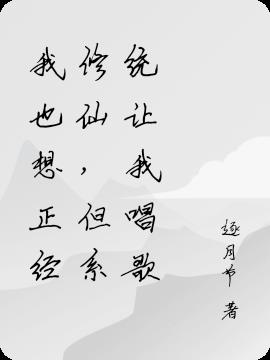 我也想正经
修仙，但系
统让我唱歌
逐月 著